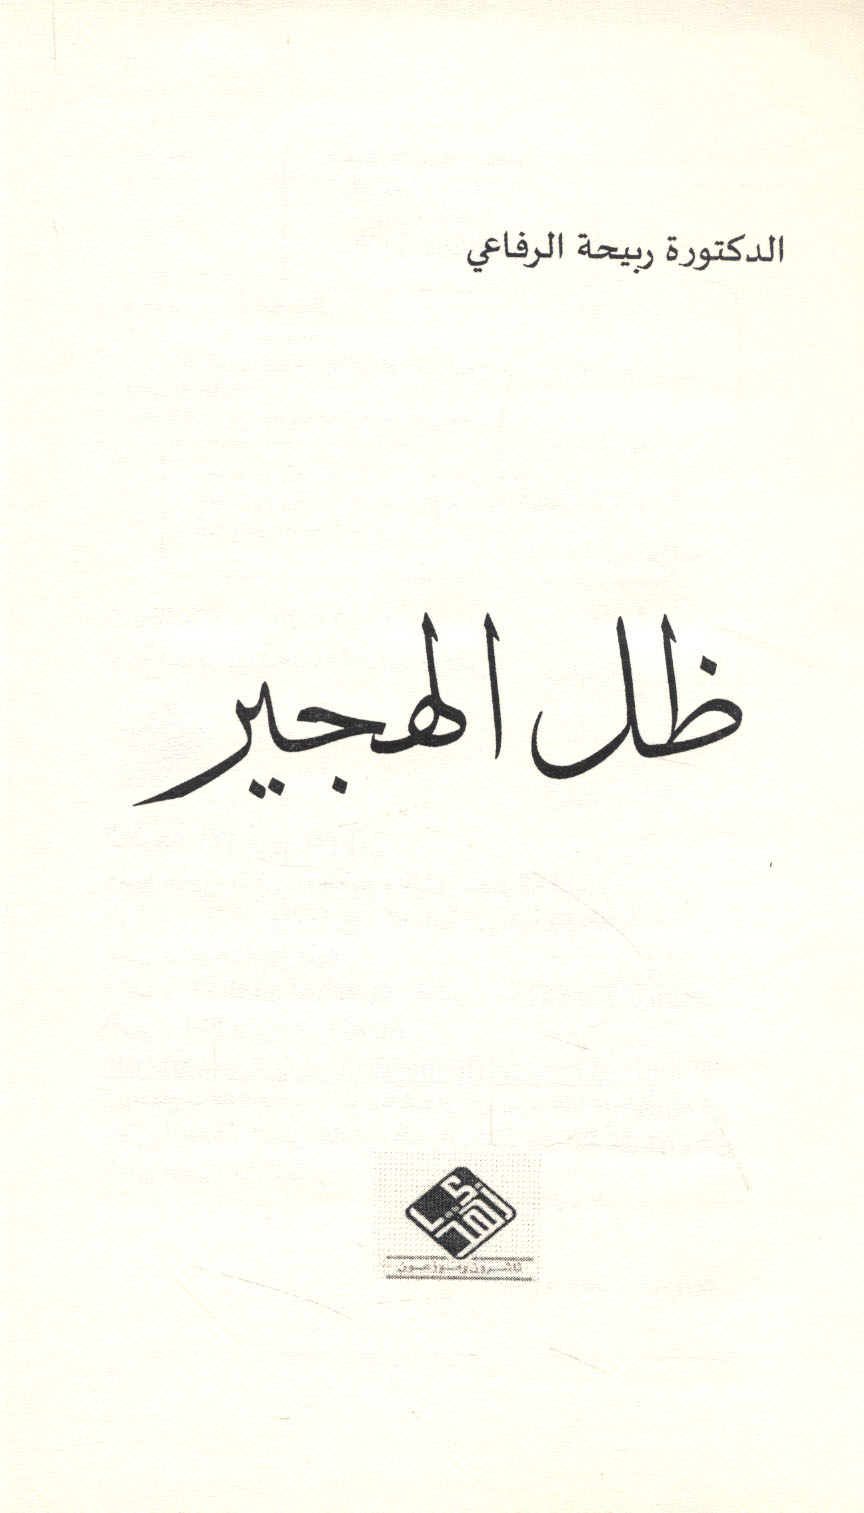 الدكتورة ربيحة الرفاعي
ظل الهجير
ناشرون وموزعون